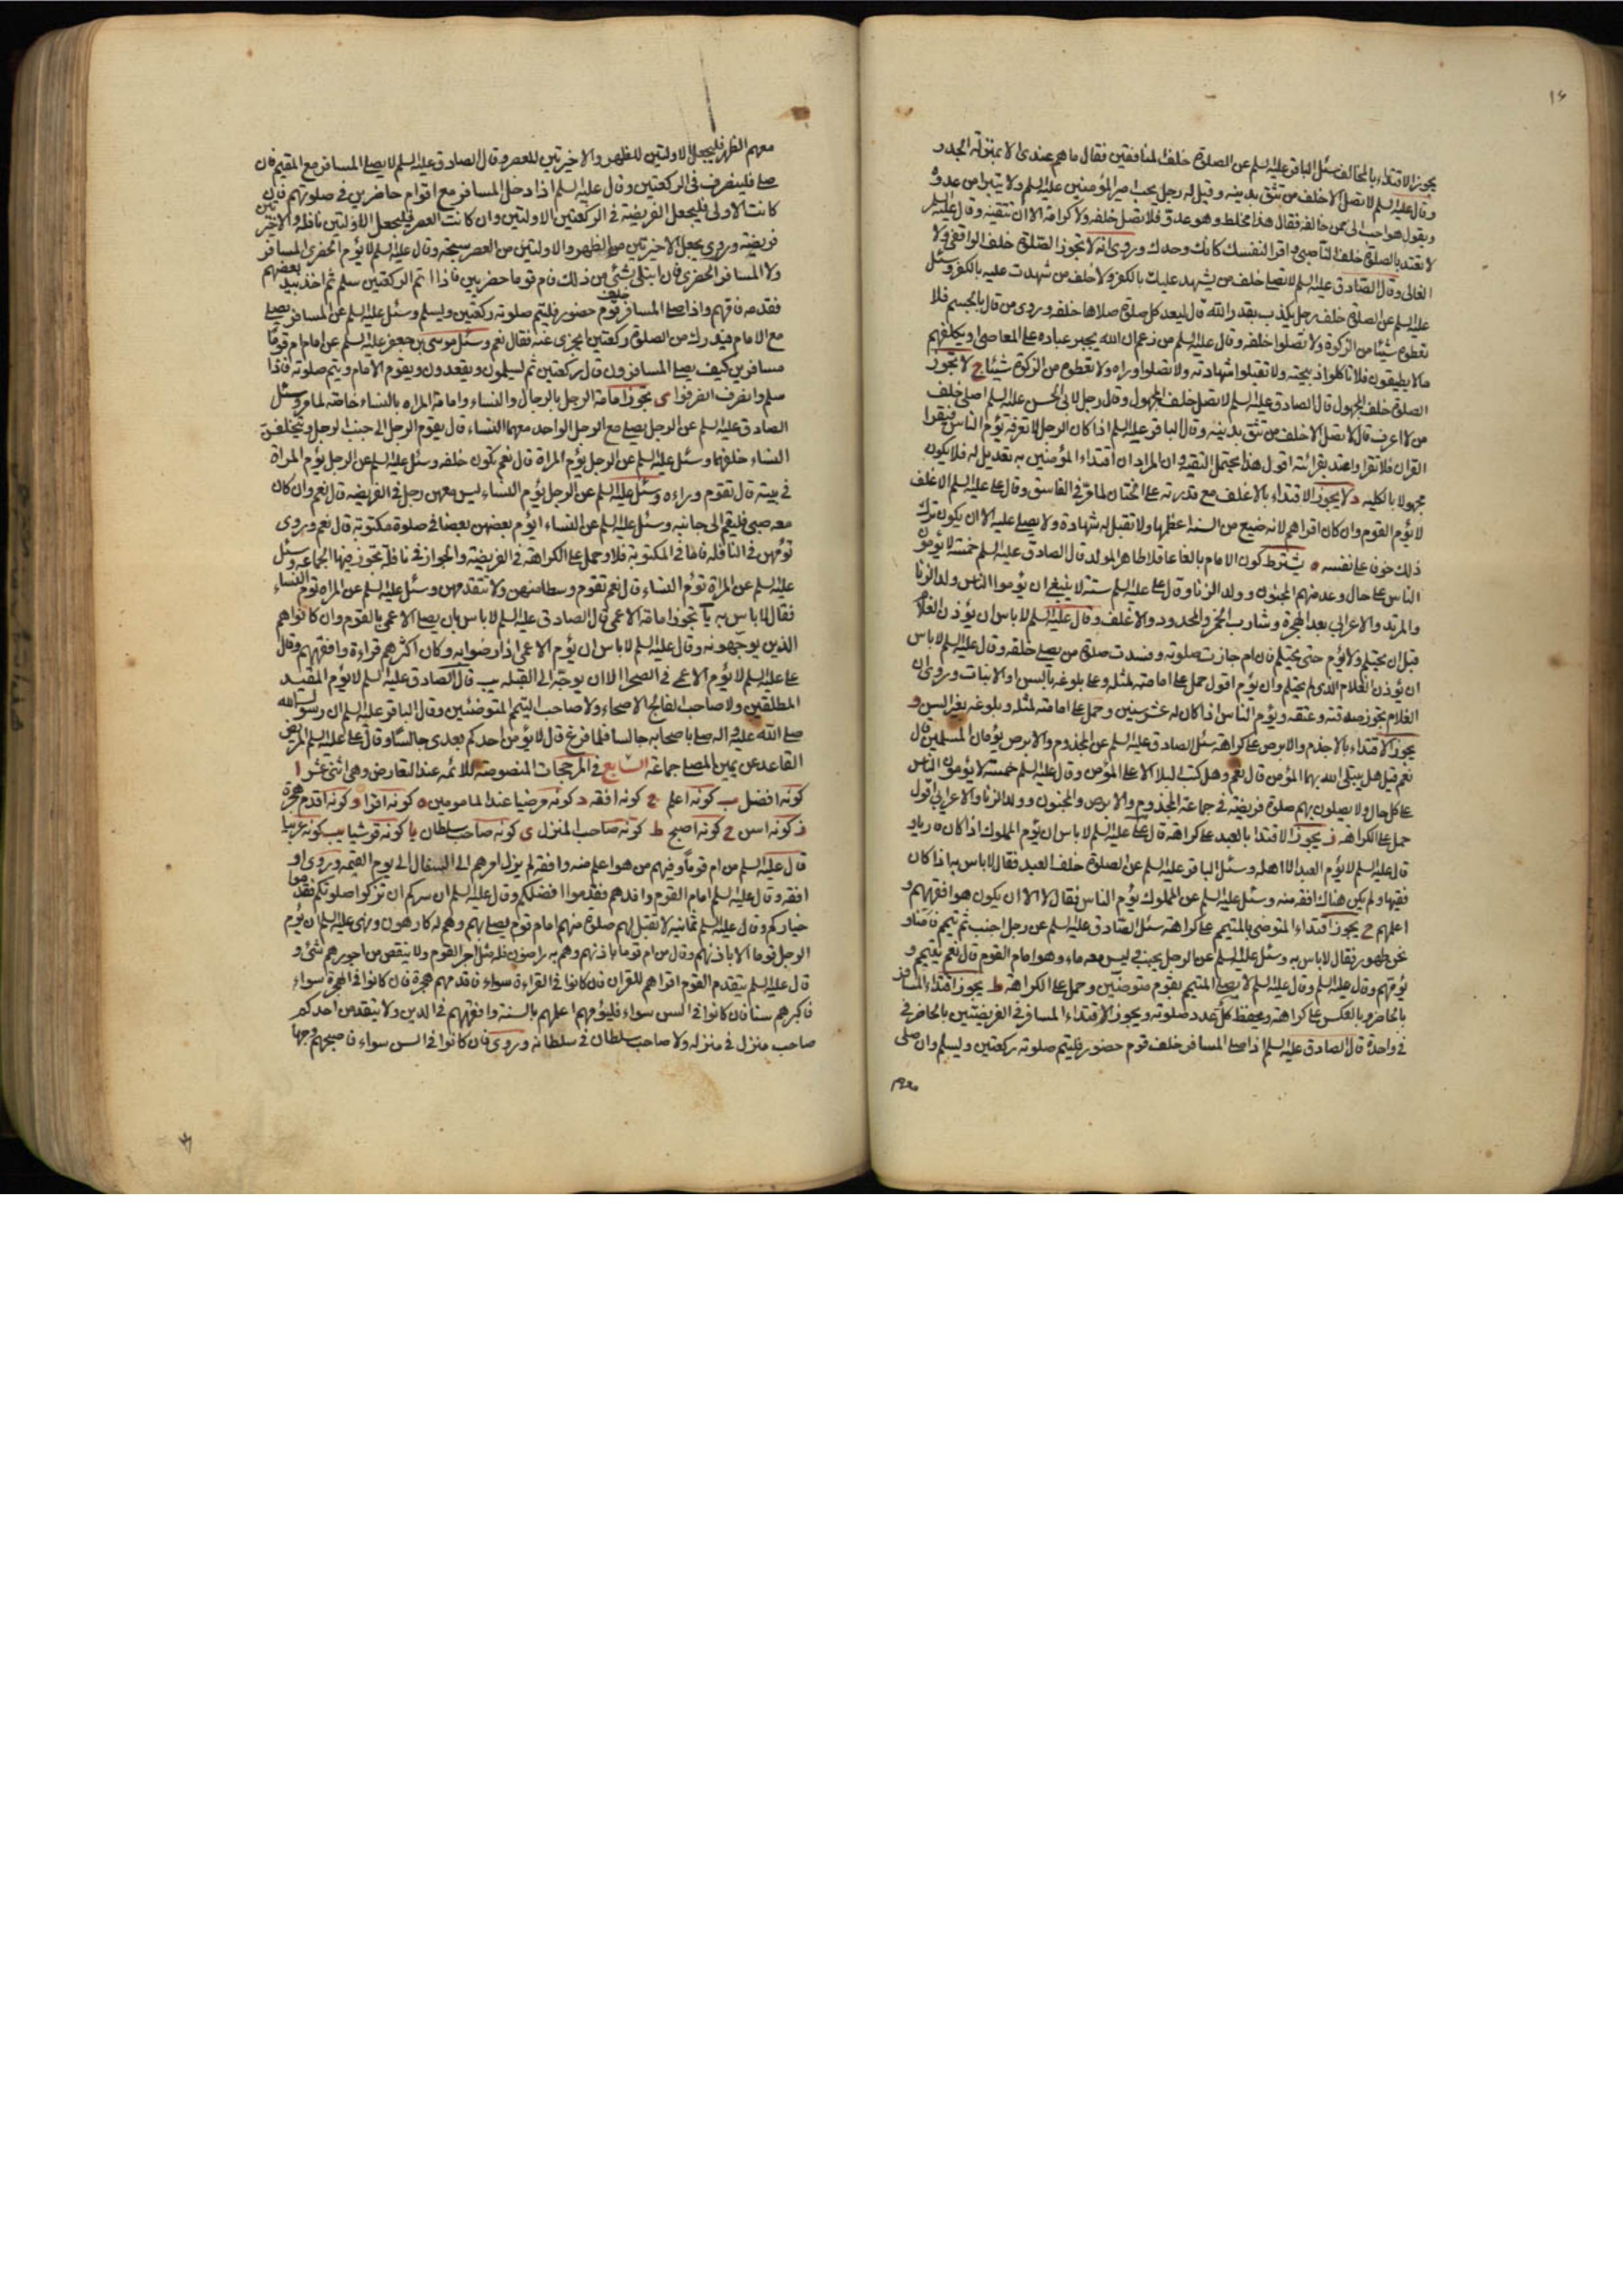 ١٤
يجوز الاقتداء بالمخالف سئل الباقر عليه السلم عن الصلوة خلف المنافقين فقال ما هم عندى الا بمنزلة الجدر و
وقال عليه السلم لا تصل الا خلف من تثق بدينه وقيل له رجل يحب امير المؤمنين عليه السلم ولا يتبرا من عدوه
ويقول هو احب الى ممن خالفه فقال هذا مخلط وهو عدو فلا تصل خلفه ولا كرامة الا ان تتقيه وقال عليه السلم
لا تعتد بالصلوة خلف الناصبى واقرا لنفسك كانك وحدك وروى انه لا تجوز الصلوة خلف الواقفى ولا
الغالى وقال الصادق عليه السلم لا تصل خلف من يشهد عليك بالكفر ولا خلف من شهدت عليه بالكفر وسئل
عليه السلم عن الصلوة خلف رجل يكذب بقدر الله قال ليعد كل صلوة صلاها خلفه وروى من قال بالجسم فلا
تعطوه شيئا من الزكوة ولا تصلوا خلفه وقال عليه السلم من زعم ان الله يجبر عباده على المعاصى او يكلفهم
ما لا يطيقون فلا تاكلوا ذبيحته ولا تقبلوا شهادته ولا تصلوا وراه ولا تعطوه من الزكوة شيئا ج لا تجوز
الصلوة خلف المجهول قال الصادق عليه السلم لا تصل خلف المجهول وقال رجل لابى الحسن عليه السلم اصلى خلف
من لا اعرف قال لا تصل الا خلف من تثق بدينه وقال الباقر عليه السلم اذا كان الرجل لا تعرفه يؤم الناس فيقرا
القران فلا تقرا واعتد بقرائته اقول هذا يحتمل التقية وان المراد ان اقتداء المؤمنين به تعديل له فلا يكون
مجهولا بالكليه د لا يجوز الاقتداء بالاغلف مع قدرته على الختان لما مر فى الفاسق وقال على عليه السلم الاغلف
لا يؤم القوم وان كان اقراهم لانه ضيع من السنة اعظمها ولا تقبل له شهادة ولا يصلى عليه الا ان يكون ترك
ذلك خوفا على نفسه ه يشترط كون الامام بالغا عاقلا طاهر المولد قال الصادق عليه السلم خمسة لا يؤمون
الناس على حال وعد منهم المجنون وولد الزنا وقال على عليه السلم ستة لا ينبغى ان يؤموا الناس ولد الزنا
والمرتد والاعرابى بعد الهجرة وشارب الخمر والمحدود والاغلف وقال عليه السلم لا باس ان يؤذن الغلام
قبل ان يحتلم ولا يؤم حتى يحتلم فان ام جازت صلوته وفسدت صلوة من يصلى خلفه وقال عليه السلم لا باس
ان يؤذن الغلام الذى لم يحتلم وان يؤم اقول حمل على امامته لمثله وعلى بلوغه بالسن او الانبات وروى ان
الغلام تجوز صدقته وعتقه ويؤم الناس اذا كان له عشر سنين وحمل على امامته لمثله وبلوغه بغير السن و
يجوز الاقتداء بالاجذم والابرص على كراهة سئل الصادق عليه السلم عن المجذوم والابرص يؤمان المسلمين قال
نعم قيل هل يبتلى الله بهما المؤمن قال نعم وهل كتب البلاء الا على المؤمن وقال عليه السلم خمسة لا يؤمون الناس
على كل حال ولا يصلون بهم صلوة فريضة فى جماعة المجذوم والابرص والمجنون وولد الزنا والاعرابى اقول
حمل على الكراهة ز يجوز الاقتدا بالعبد على كراهة قال على عليه السلم لا باس ان يؤم المملوك اذا كان قاريا و
قال عليه السلم لا يؤم العبد الا اهله وسئل الباقر عليه السلم عن الصلوة خلف العبد فقال لا باس به اذا كان
فقيها ولم يكن هناك افقه منه وسئل عليه السلم عن المملوك يؤم الناس فقال لا الا ان يكون هو افقههم و
اعلمهم ح يجوز اقتداء المتوضى بالمتيمم على كراهة سئل الصادق عليه السلم عن رجل اجنب ثم تيمم فامنا و
نحن طهور فقال لا باس به وسئل عليه السلم عن الرجل يجنب ليس معه ماء وهو امام القوم قال نعم يتيمم و
يؤمهم وقال عليه السلم لا يصلى المتيمم بقوم متوضئين وحمل على الكراهة ط يجوز اقتداء المسافر
بالحاضر وبالعكس على كراهة ويحفظ كل عدد صلوته ويجوز الاقتداء المسافر فى الفريضتين بالحاضر فى
فى واحدة قال الصادق عليه السلم اذا صلى المسافر خلف قوم حضور فليتم صلوته ركعتين وليسلم وان صلى
معهم
معهم الظهر فليجعل الاولتين للظهر والاخيرتين للعصر وقال الصادق عليه السلم لا يصلى المسافر مع المقيم فان
صلى فلينصرف فى الركعتين وقال عليه السلم اذا دخل المسافر مع اقوام حاضرين فى صلوتهم فان
كانت الاولى فليجعل الفريضة فى الركعتين الاولتين وان كانت العصر فليجعل الاولتين نافلة والاخيرتين
فريضة وروى يجعل الاخيرتين من الظهر والاولتين من العصر سبحة وقال عليه السلم لا يؤم الحضرى المسافر
ولا المسافر الحضرى فان ابتلى بشئ من ذلك فام قوما حضريين فاذا اتم الركعتين سلم ثم اخذ بيد بعضهم
فقدمه فامهم واذا صلى المسافر خلف قوم حضور فليتم صلوته ركعتين ويسلم وسئل عليه السلم عن المسافر يصلى
مع الامام فيدرك من الصلوة ركعتين ايجزى عنه فقال نعم وسئل موسى بن جعفر عليه السلم عن امام ام قوما
مسافرين كيف يصلى المسافرون قال ركعتين ثم يسلمون ويقعدون ويقوم الامام ويتم صلوته فاذا
سلم وانصرف انصرفوا ى تجوز امامة الرجل بالرجال والنساء وامامة المراه بالنساء خاصة لما مر وسئل
الصادق عليه السلم عن الرجل يصلى مع الرجل الواحد معهما النساء قال يقوم الرجل الى جنب الرجل ويتخلفن
النساء خلفهما وسئل عليه السلم عن الرجل يؤم المراة قال نعم تكون خلفه وسئل عليه السلم عن الرجل يؤم المراة
فى بيته قال تقوم وراءه وسئل عليه السلم عن الرجل يؤم النساء ليس معهن رجل فى الفريضه قال نعم وان كان
معه صبى فليقم الى جانبه وسئل عليه السلم عن النساء ايؤم بعضهن بعضا فى صلوة مكتوبة قال نعم وروى
تؤمهن فى النافلة فاما فى المكتوبة فلا وحمل على الكراهة فى الفريضة والجواز فى نافلة تجوز فيها الجماعة وسئل
عليه السلم عن المراة تؤم النساء قال نعم تقوم وسطا بينهن ولا تتقدمهن وسئل عليه السلم عن المراة تؤم النساء
فقال لا باس به يا تجوز امامة الاعمى قال الصادق عليه السلم لا باس بان يصلى الاعمى بالقوم وان كانوا هم
الذين يوجهونه وقال عليه السلم لا باس ان يؤم الاعمى اذا رضوا به وكان اكثرهم قراءة وافقههم وقال
على عليه السلم لا يؤم الاعمى فى الصحرا الا ان يوجه الى القبله يب قال الصادق عليه السلم لا يؤم المقيد
المطلقين ولا صاحب الفالج الاصحاء ولا صاحب التيمم المتوضئين وقال الباقر عليه السلم ان رسول الله
صلى الله عليه واله صلى باصحابه جالسا فلما فرغ قال لا يؤمن احدكم بعدى جالسا وقال على عليه السلم المريض
القاعد عن يمين المصلى جماعة السابع فى المرجحات المنصوصة للائمة عند التعارض وهى اثنى عشر ا
كونه افضل ب كونه اعلم ج كونه افقه د كونه مرضيا عند المامومين ه كونه اقرا و كونه اقدم هجرة
ز كونه اسن ح كونه اصبح ط كونه صاحب المنزل ى كونه صاحب سلطان يا كونه قرشيا يب كونه عربيا
قال عليه السلم من ام قوما وفيهم من هو اعلم منه وافقه لم يزل امرهم الى السفال الى يوم القيمه وروى او
افقه وقال عليه السلم امام القوم وافدهم فقدموا افضلكم وقال عليه السلم ان سركم ان تزكوا صلوتكم فقدموا
خياركم وقال عليه السلم ثمانية لا تقبل لهم صلوة منهم امام قوم يصلى بهم وهم له كارهون ونهى عليه السلم ان يؤم
الرجل قوما الا باذنهم وقال من ام قوما باذنهم وهم به راضون فله مثل اجر القوم ولا ينقص من اجورهم شئ و
قال عليه السلم يتقدم القوم اقراهم للقران فان كانوا فى القراءة سواء فاقدمهم هجرة فان كانوا فى الهجرة سواء
فاكبرهم سنا فان كانوا فى السن سواء فليؤمهم اعلمهم بالسنة وافقههم فى الدين ولا يتقدمن احدكم
صاحب منزل فى منزله ولا صاحب سلطان فى سلطانه وروى فان كانوا فى السن سواء فاصبحهم وجها